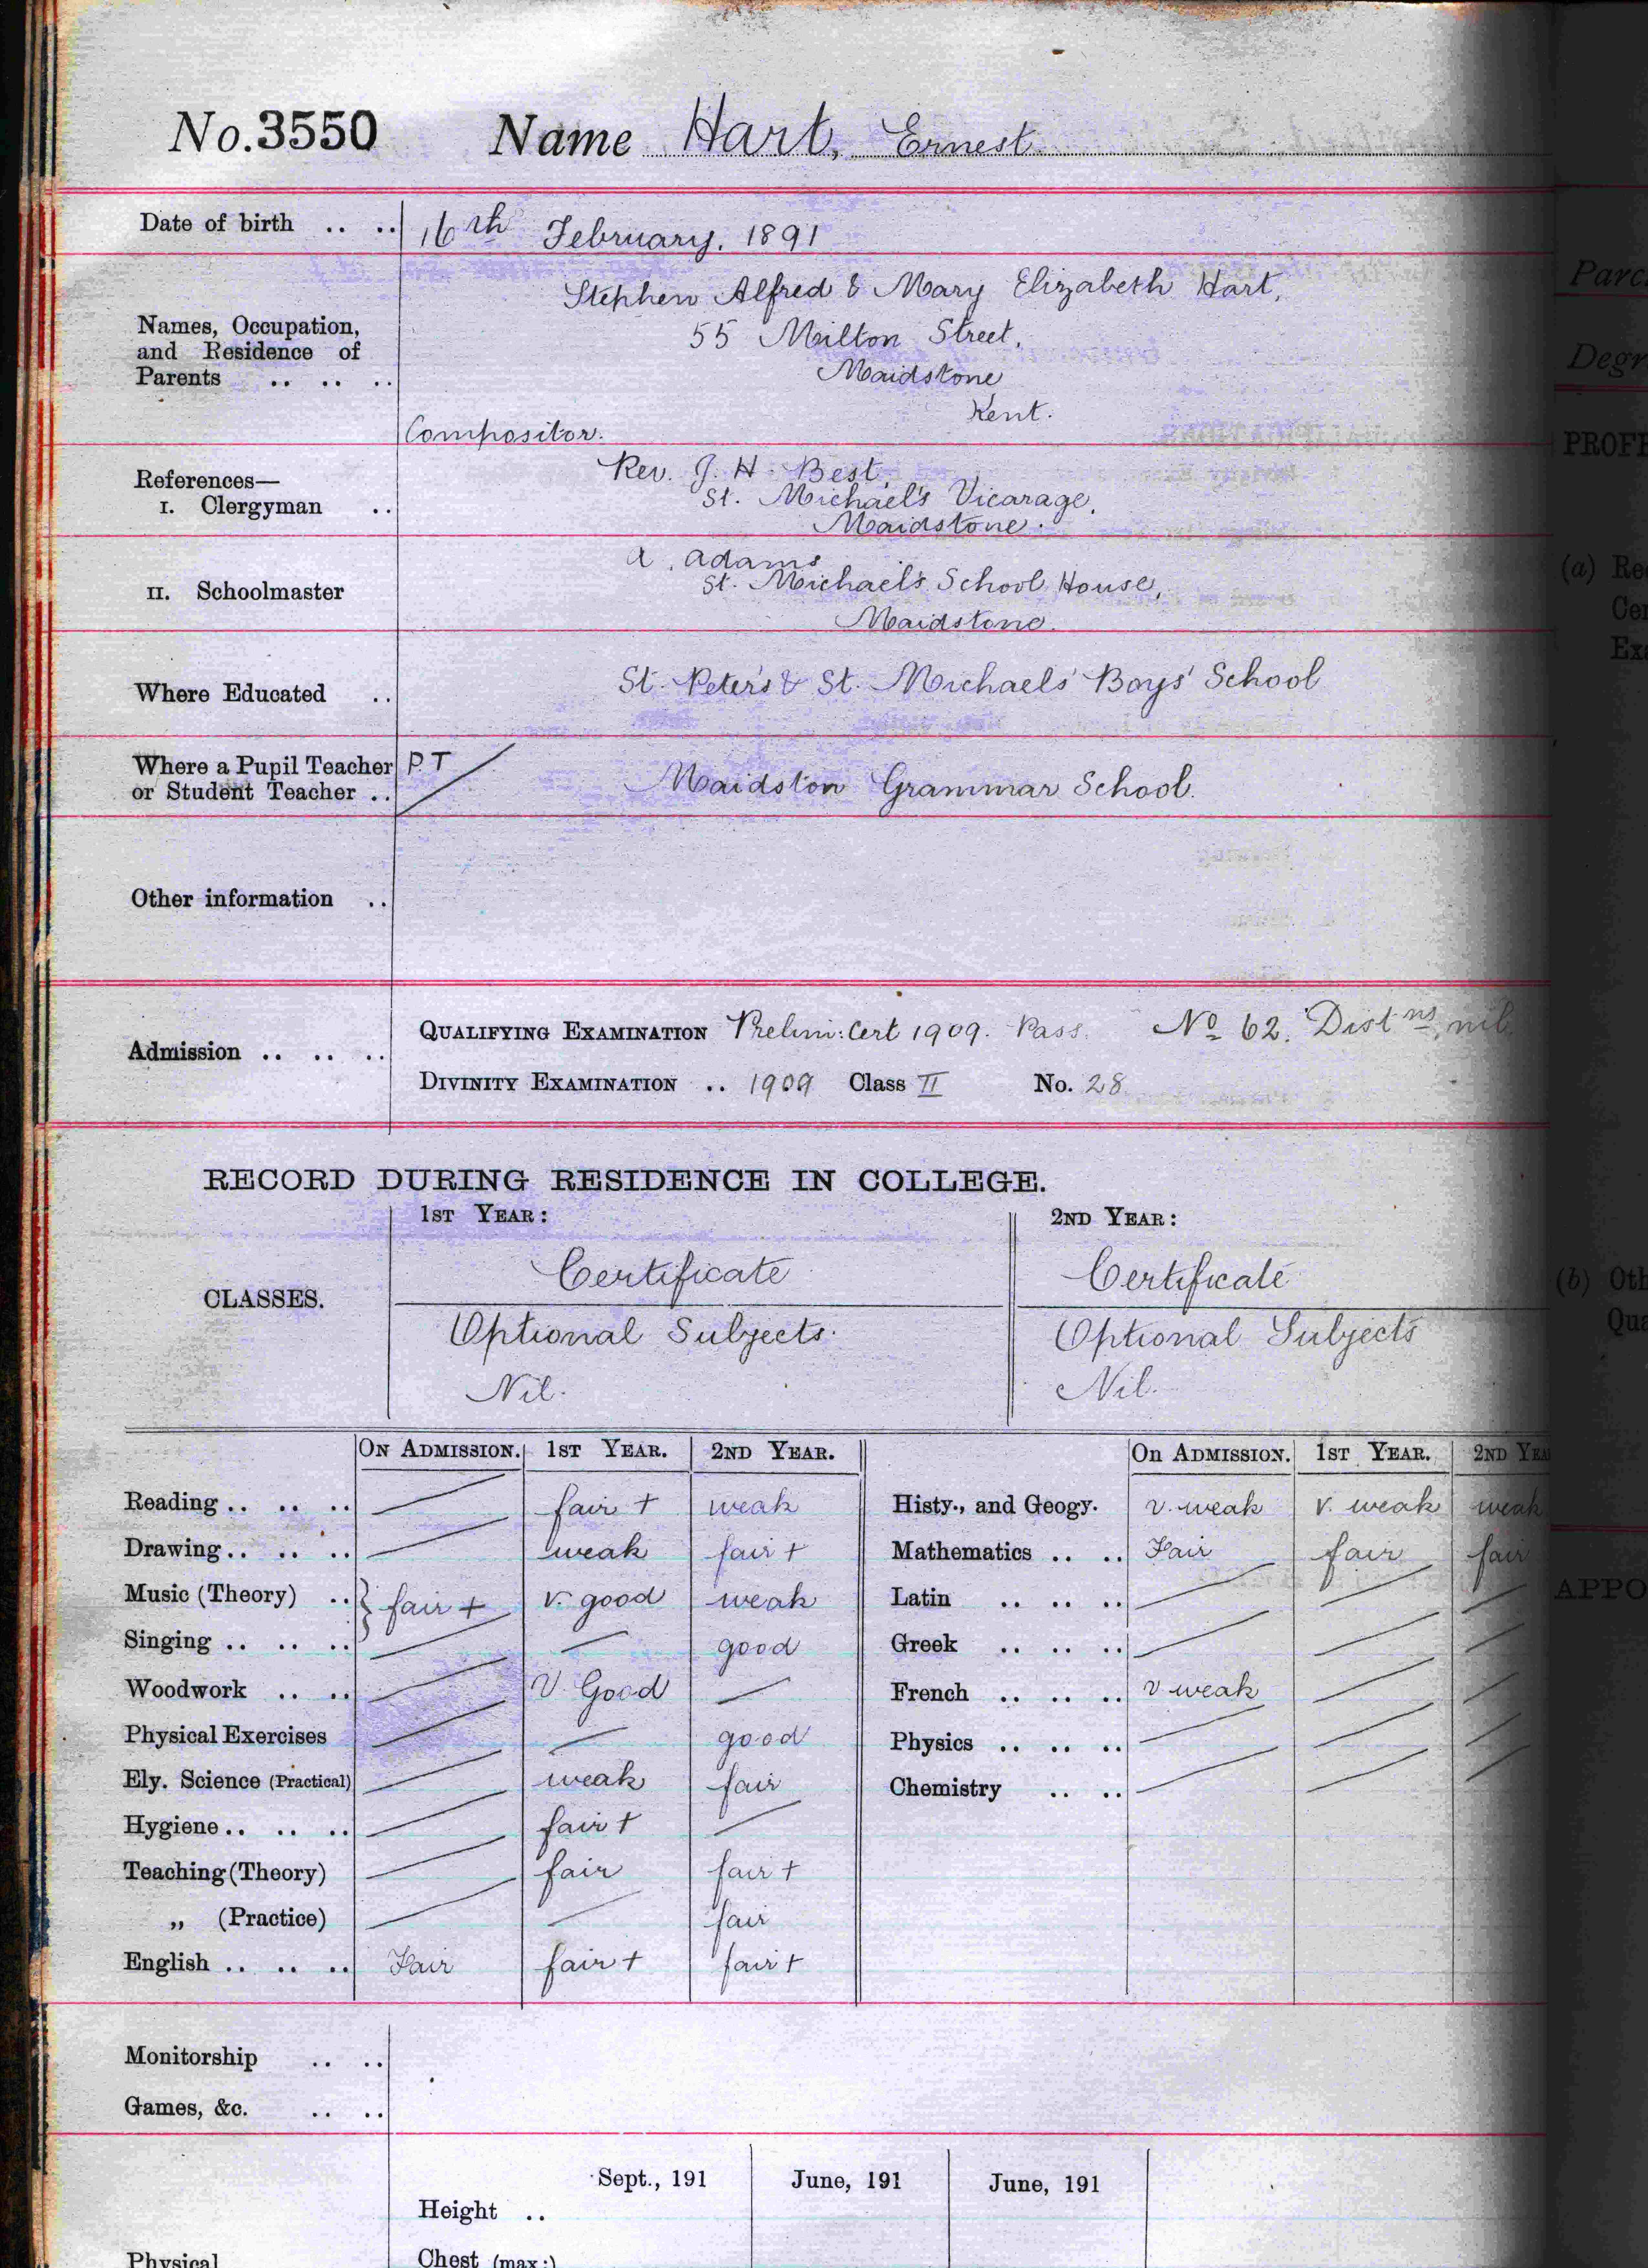 No. 3550 Name Hart, Ernest
Date of birth .. .. 16th February, 1891
Names, Occupation, and Residence of Parents .. .. ..
Stephen Alfred & Mary Elizabeth Hart,
55 Milton Street,
Maidstone
Kent.
Compositor.
References—
I. Clergyman ..
Rev. J. H. Best,
St. Michael's Vicarage,
Maidstone.
II. Schoolmaster
A. Adams
St. Michael's School House,
Maidstone.
Where Educated .. St. Peter's & St. Michaels' Boys' School
Where a Pupil Teacher or Student Teacher .. P.T Maidston Grammar School.
Other information ..
Admission .. .. ..
QUALIFYING EXAMINATION Prelim: Cert 1909. Pass. No 62. Distns, nil.
DIVINITY EXAMINATION .. 1909 Class II No. 28.
RECORD DURING RESIDENCE IN COLLEGE.
1ST YEAR: 2ND YEAR:
CLASSES. Certificate Certificate
Optional Subjects. Optional Subjects
Nil. Nil.
ON ADMISSION. 1ST YEAR. 2ND YEAR.
Reading .. .. .. fair + weak
Drawing .. .. .. weak fair +
Music (Theory) .. } fair + v. good weak
Singing .. .. .. good
Woodwork .. .. V. Good
Physical Exercises good
Ely. Science (Practical) weak fair
Hygiene .. .. .. fair +
Teaching (Theory) fair fair +
„ (Practice) fair
English .. .. .. Fair fair + fair +
On ADMISSION. 1ST YEAR. 2ND YEA
Histy., and Geogy. v. weak v. weak weak
Mathematics .. .. Fair fair fair
Latin .. .. ..
Greek .. .. ..
French .. .. .. v weak
Physics .. .. ..
Chemistry .. ..
Monitorship .. ..
Games, &c. .. ..
Sept., 191 June, 191 June, 191
Height ..
Physical Chest (max:)
Parc
Degr
PROFE
(a) Re
Cer
Exa
(b) Oth
Qua
APPO